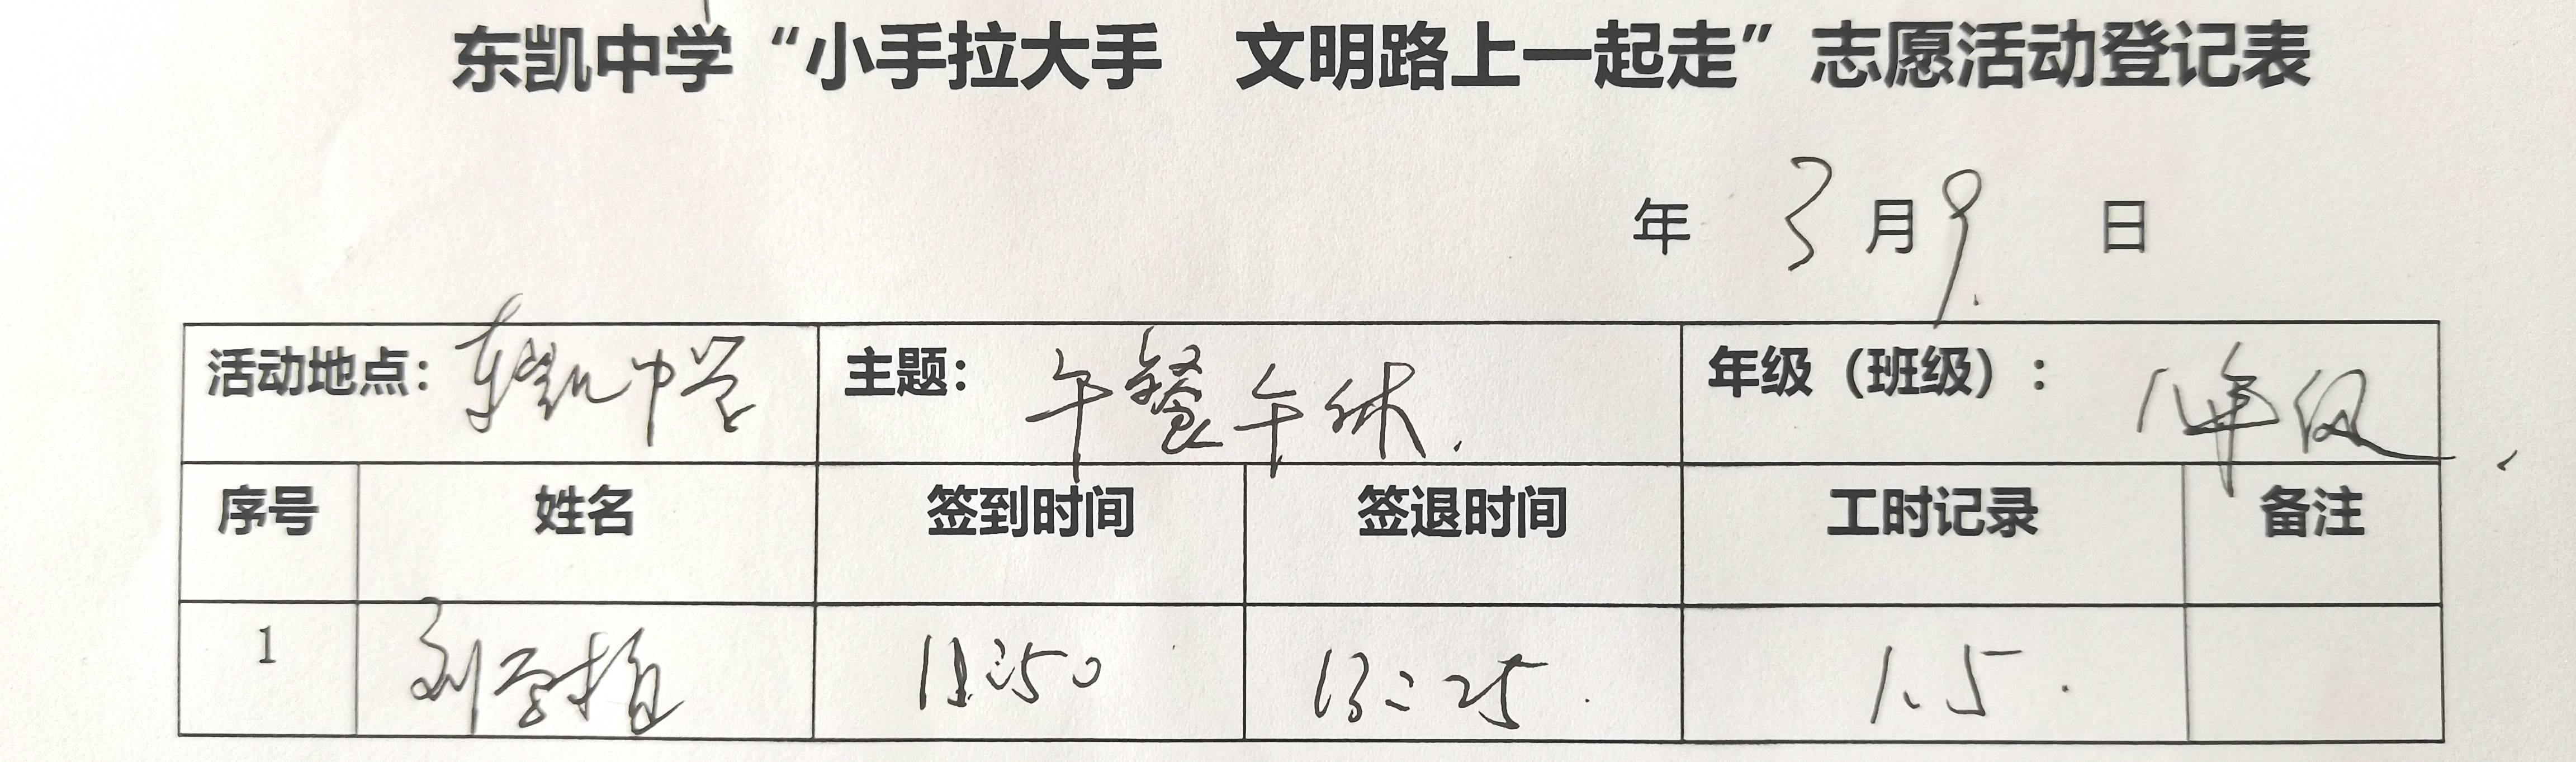 东凯中学“小手拉大手 文明路上一起走”志愿活动登记表
年 3 月 9. 日
活动地点：东凯中学 主题：午餐午休. 年级（班级）：八年级
序号 姓名 签到时间 签退时间 工时记录 备注
1 刘 11:50 13:25. 1.5.